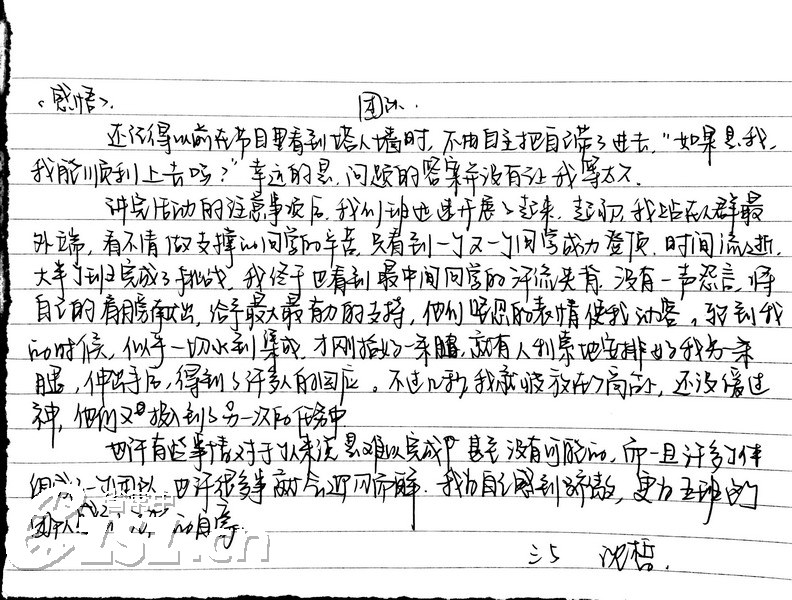 〈感悟〉. 团队.
还记得以前在节目里看到路人墙时,不由自主把自己带了进去,“如果是我,
我能顺利上去吗?”幸运的是,问题的答案并没有让我等太久.
讲完活动的注意事项后,我们班也迅速开展了起来.起初,我站在人群最
外端,看不清做支撑的同学的辛苦,只看到一个又一个同学成功登顶.时间流逝.
大半个班完成了挑战,我终于也看到最中间同学的汗流夹背.没有一声怨言,将
自己的肩膀献出,给予最大最有力的支持,他们坚忍的表情使我动容,轮到我
的时候,似乎一切水到渠成,才刚抬好一条腿,就有人利索地安排好我另一条
腿,伸出手后,得到了许多人的回应。不过几秒,我就被放在了高台,还没缓过
神,他们又投入到了另一次的任务中
也许有些事情对于个人来说是难以完成,甚至没有可能的,而一旦许多个体
组成了一个团队,也许很多事都会迎刃而解.我为自己感到骄傲,更为五班的
团队 自豪
三5 沈哲.
ZSLSL.cn